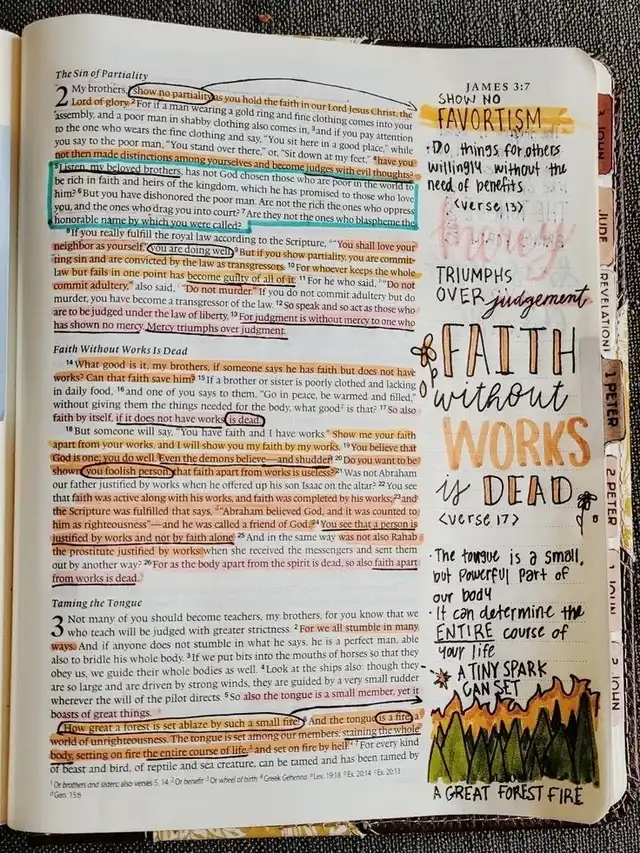 The Sin of Partiality
2 My brothers, show no partiality as you hold the faith in our Lord Jesus Christ, the
Lord of glory. 2 For if a man wearing a gold ring and fine clothing comes into your
assembly, and a poor man in shabby clothing also comes in, 3 and if you pay attention
to the one who wears the fine clothing and say, "You sit here in a good place," while
you say to the poor man, "You stand over there," or, "Sit down at my feet," 4 have you
not then made distinctions among yourselves and become judges with evil thoughts?
5 Listen, my beloved brothers, has not God chosen those who are poor in the world to
be rich in faith and heirs of the kingdom, which he has promised to those who love
him? 6 But you have dishonored the poor man. Are not the rich the ones who oppress
you, and the ones who drag you into court? 7 Are they not the ones who blaspheme the
honorable name by which you were called?
8 If you really fulfill the royal law according to the Scripture, "You shall love your
neighbor as yourself," you are doing well. 9 But if you show partiality, you are commit
ting sin and are convicted by the law as transgressors. 10 For whoever keeps the whole
law but fails in one point has become guilty of all of it. 11 For he who said, "Do not
commit adultery," also said, "Do not murder." If you do not commit adultery but do
murder, you have become a transgressor of the law. 12 So speak and so act as those who
are to be judged under the law of liberty. 13 For judgment is without mercy to one who
has shown no mercy. Mercy triumphs over judgment.
Faith Without Works Is Dead
14 What good is it, my brothers, if someone says he has faith but does not have
works? Can that faith save him? 15 If a brother or sister is poorly clothed and lacking
in daily food, 16 and one of you says to them, "Go in peace, be warmed and filled,"
without giving them the things needed for the body, what good? is that? 17 So also
faith by itself, if it does not have works, is dead.
18 But someone will say, "You have faith and I have works." Show me your faith
apart from your works, and I will show you my faith by my works. 19 You believe that
God is one; you do well. Even the demons believe—and shudder! 20 Do you want to be
shown, you foolish person, that faith apart from works is useless? 21 Was not Abraham
our father justified by works when he offered up his son Isaac on the altar? 22 You see
that faith was active along with his works, and faith was completed by his works; 23 and
the Scripture was fulfilled that says, "Abraham believed God, and it was counted to
him as righteousness"—and he was called a friend of God. 24 You see that a person is
justified by works and not by faith alone. 25 And in the same way was not also Rahab
the prostitute justified by works when she received the messengers and sent them
out by another way? 26 For as the body apart from the spirit is dead, so also faith apart
from works is dead.
Taming the Tongue
3 Not many of you should become teachers, my brothers, for you know that we
who teach will be judged with greater strictness. 2 For we all stumble in many
ways. And if anyone does not stumble in what he says, he is a perfect man, able
also to bridle his whole body. 3 If we put bits into the mouths of horses so that they
obey us, we guide their whole bodies as well. 4 Look at the ships also: though they
are so large and are driven by strong winds, they are guided by a very small rudder
wherever the will of the pilot directs. 5 So also the tongue is a small member, yet it
boasts of great things.
How great a forest is set ablaze by such a small fire! 6 And the tongue is a fire, a
world of unrighteousness. The tongue is set among our members, staining the whole
body, setting on fire the entire course of life, and set on fire by hell. 7 For every kind
of beast and bird, of reptile and sea creature, can be tamed and has been tamed by
1 Or brothers and sisters; also verses 5, 14 2 Or benefit 3 Or wheel of birth 4 Greek Gehenna Lev. 19:18 Ex. 20:14 Ex. 20:13
Gen. 15:6
JAMES 3:7
SHOW NO
FAVORTISM
· Do, things for others
willingly without the
need of benefits
<verse 13>
mercy
TRIUMPHS
OVER judgement
FAITH
without
WORKS
is DEAD
<verse 17>
· The tongue is a small,
but powerful part of
our body
· It can determine the
ENTIRE course of
your life
A TINY SPARK
CAN SET
A GREAT FOREST FIRE
3 JOHN
JUDE
REVELATION
1 PETER
2 PETER
1 JOHN
2 JOHN